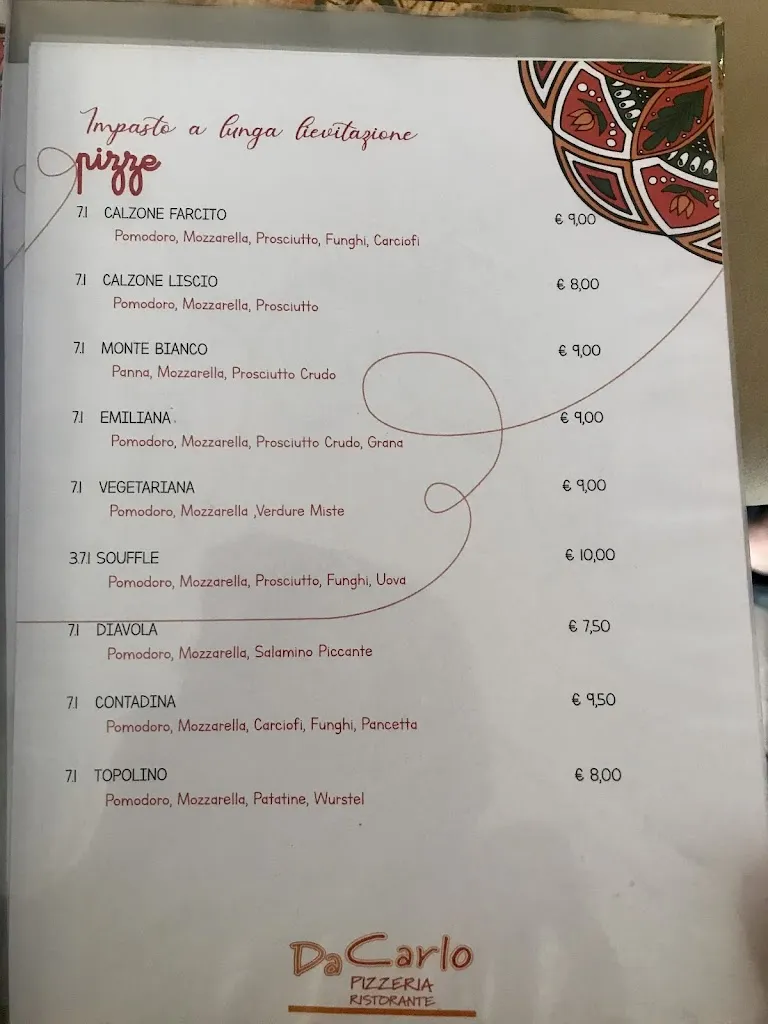 Impasto a lunga lievitazione
pizze
7.1 CALZONE FARCITO € 9,00
Pomodoro, Mozzarella, Prosciutto, Funghi, Carciofi
7.1 CALZONE LISCIO € 8,00
Pomodoro, Mozzarella, Prosciutto
7.1 MONTE BIANCO € 9,00
Panna, Mozzarella, Prosciutto Crudo
7.1 EMILIANA € 9,00
Pomodoro, Mozzarella, Prosciutto Crudo, Grana
7.1 VEGETARIANA € 9,00
Pomodoro, Mozzarella ,Verdure Miste
3.7.1 SOUFFLE € 10,00
Pomodoro, Mozzarella, Prosciutto, Funghi, Uova
7.1 DIAVOLA € 7,50
Pomodoro, Mozzarella, Salamino Piccante
7.1 CONTADINA € 9,50
Pomodoro, Mozzarella, Carciofi, Funghi, Pancetta
7.1 TOPOLINO € 8,00
Pomodoro, Mozzarella, Patatine, Wurstel
Da Carlo
PIZZERIA
RISTORANTE